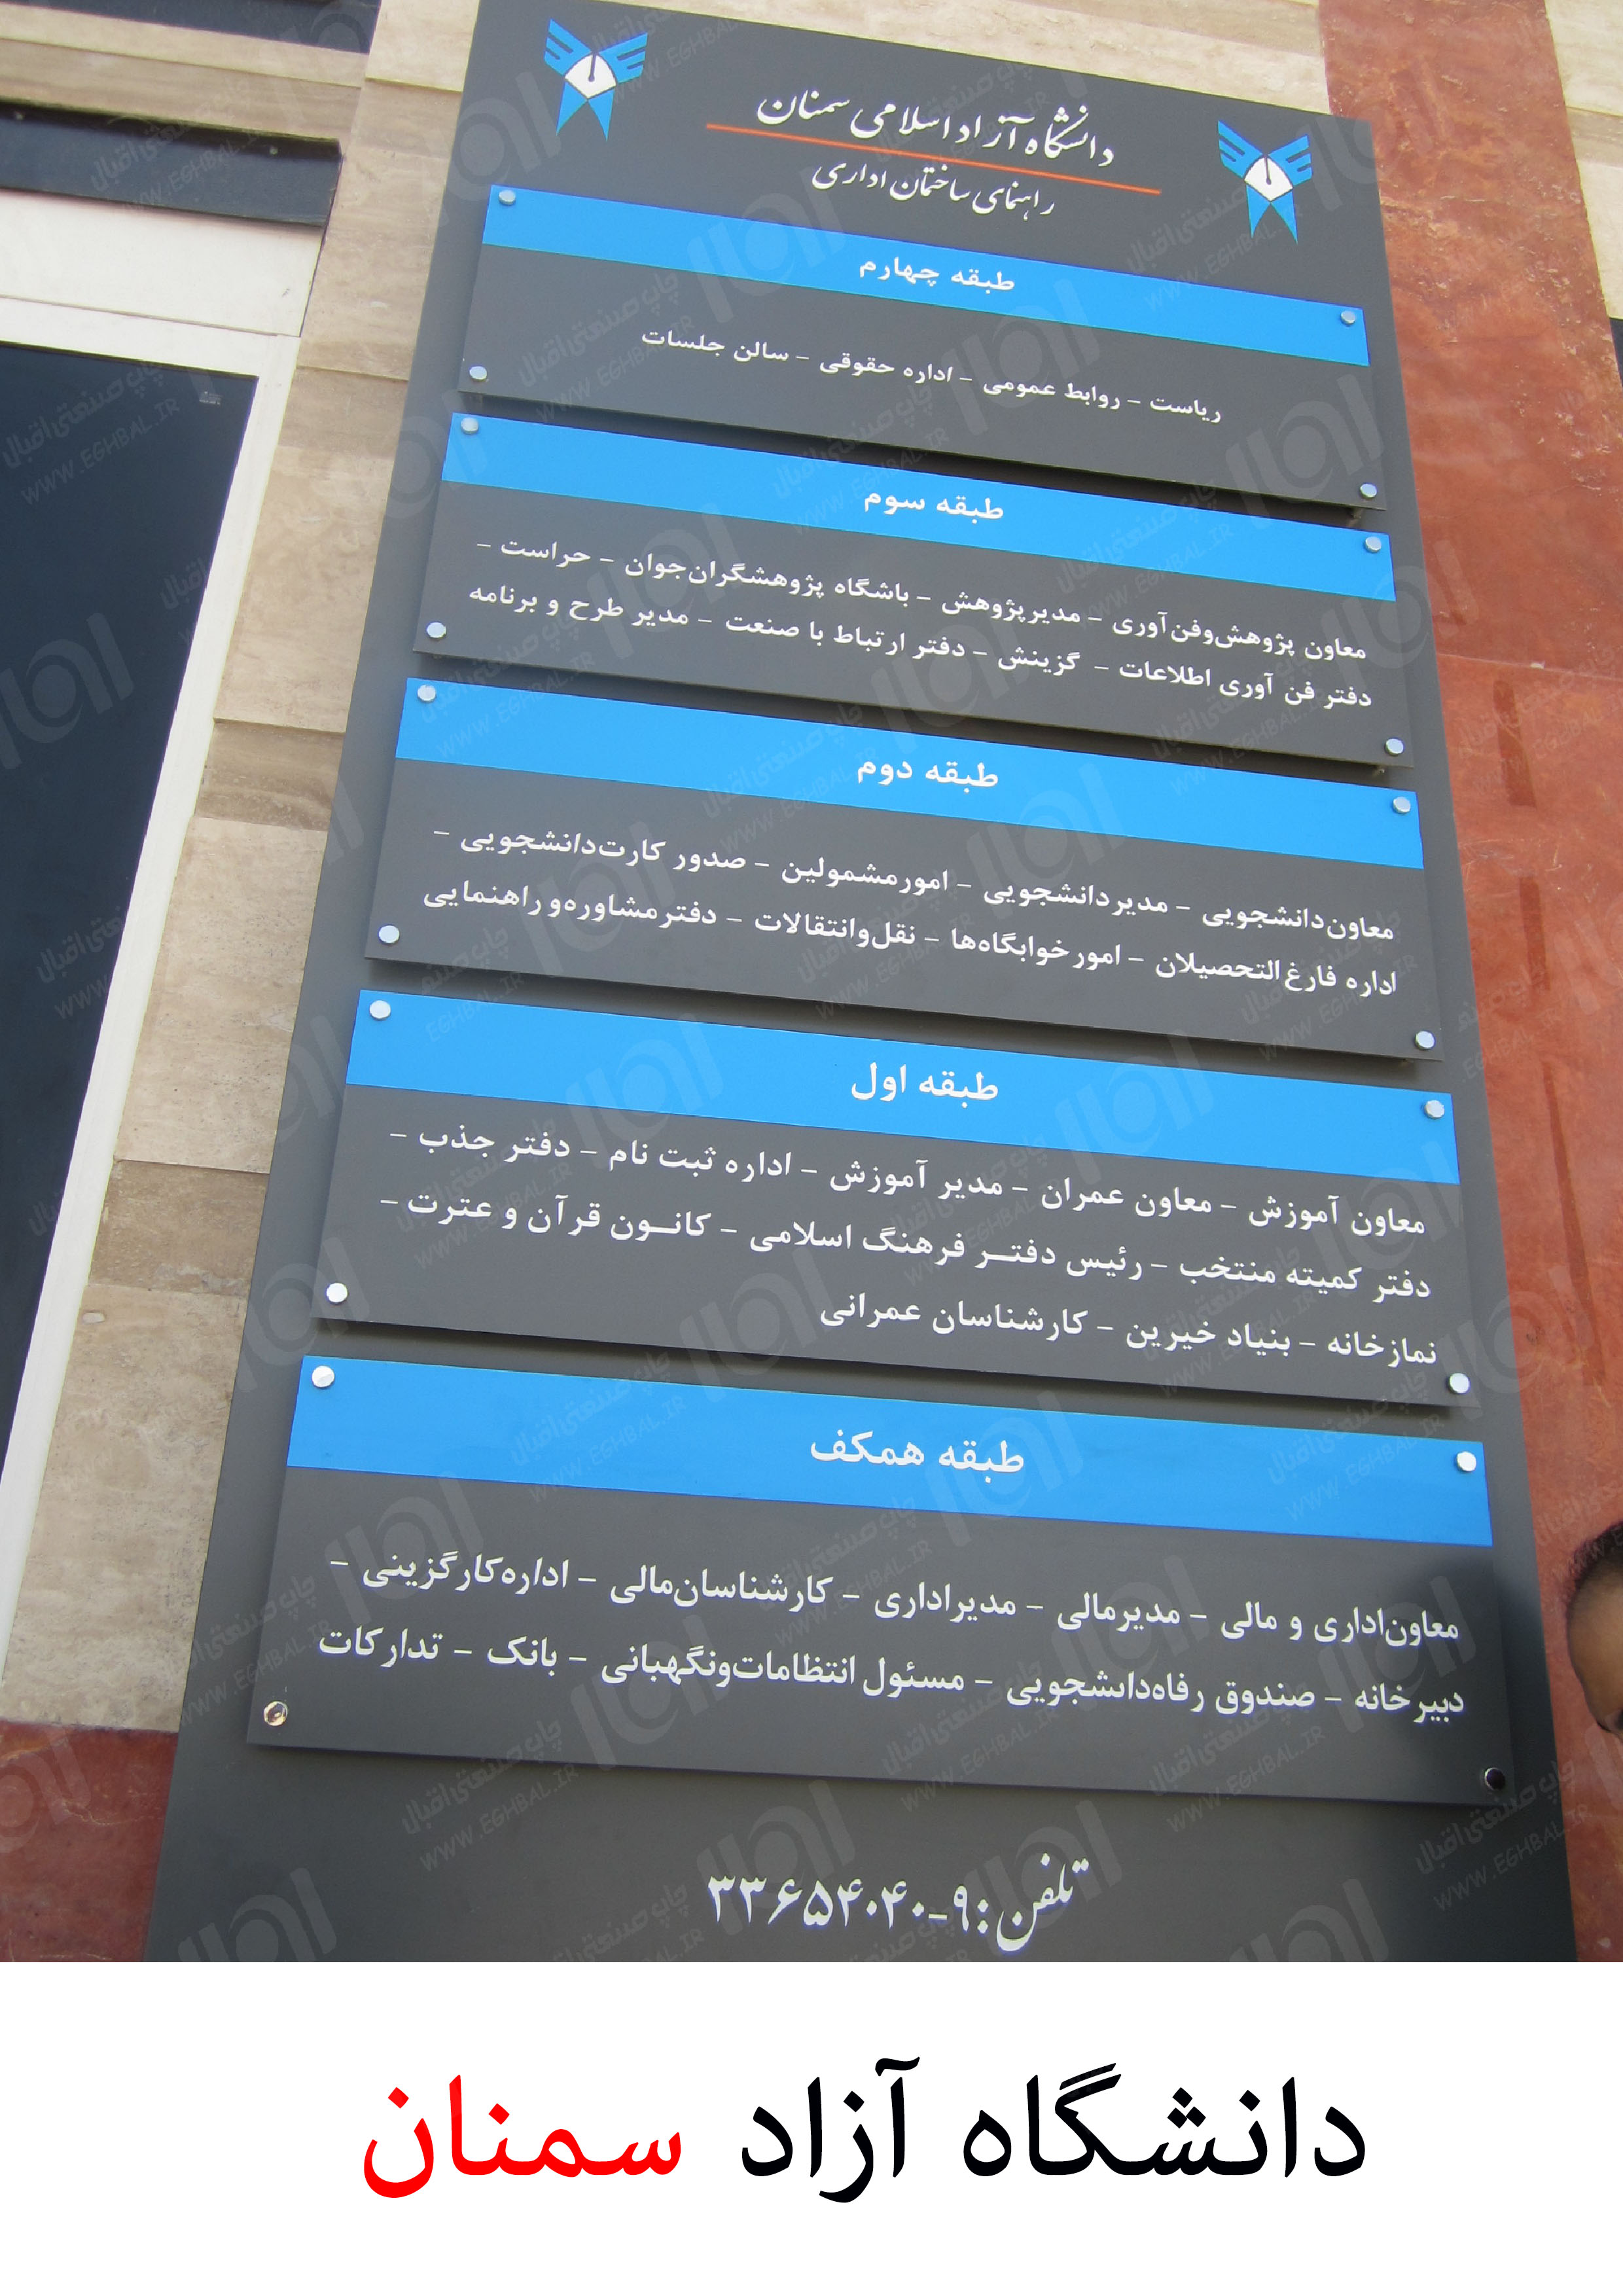 دانشگاه آزاد اسلامی سمنان
راهنمای ساختمان اداری
طبقه چهارم
ریاست - روابط عمومی - اداره حقوقی - سالن جلسات
طبقه سوم
معاون پژوهش‌وفن‌آوری - مدیرپژوهش - باشگاه پژوهشگران‌جوان - حراست -
دفتر فن آوری اطلاعات - گزینش - دفتر ارتباط با صنعت - مدیر طرح و برنامه
طبقه دوم
معاون‌دانشجویی - مدیردانشجویی - امورمشمولین - صدور کارت‌دانشجویی -
اداره فارغ‌التحصیلان - امورخوابگاه‌ها - نقل‌وانتقالات - دفترمشاوره‌وراهنمایی
طبقه اول
معاون آموزش - معاون عمران - مدیر آموزش - اداره ثبت نام - دفتر جذب -
دفتر کمیته منتخب - رئیس دفتـر فرهنگ اسلامی - کانـون قرآن و عترت -
نمازخانه - بنیاد خیرین - کارشناسان عمرانی
طبقه همکف
معاون‌اداری و مالی - مدیرمالی - مدیراداری - کارشناسان‌مالی - اداره‌کارگزینی -
دبیرخانه - صندوق رفاه‌دانشجویی - مسئول انتظامات‌ونگهبانی - بانک - تدارکات
تلفن: ۹-۳۳۶۵۴۰۴۰
دانشگاه آزاد سمنان
چاپ صنعتی اقبال
WWW.EGHBAL.IR